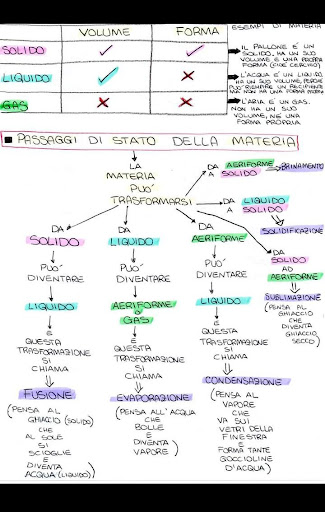 VOLUME FORMA
ESEMPI DI MATERIA
SOLIDO ✓ ✓
IL PALLONE È UN
SOLIDO. HA UN SUO
VOLUME E UNA PROPRIA
FORMA
LIQUIDO ✓ X
L'ACQUA È UN LIQUIDO.
HA UN SUO VOLUME, PERCHÉ
PUÒ RIEMPIRE UN RECIPIENTE
MA NON HA UNA FORMA PROPRIA
GAS X X
L'ARIA È UN GAS.
NON HA UN SUO
VOLUME, NE UNA
FORMA PROPRIA
PASSAGGI DI STATO DELLA MATERIA
LA
MATERIA
PUO'
TRASFORMARSI
DA AERIFORME
A SOLIDO
BRINAMENTO
DA LIQUIDO
A SOLIDO
SOLIDIFICAZIONE
DA
SOLIDO
PUO'
DIVENTARE
LIQUIDO
E
QUESTA
TRASFORMAZIONE
SI
CHIAMA
FUSIONE
(PENSA AL
GHIACCIO (SOLIDO)
CHE
AL SOLE
SI
SCIOGLIE
E
DIVENTA
ACQUA (LIQUIDO))
DA
LIQUIDO
PUO'
DIVENTARE
AERIFORME
O
GAS
E
QUESTA
TRASFORMAZIONE
SI
CHIAMA
EVAPORAZIONE
(PENSA ALL'ACQUA
CHE
BOLLE
E
DIVENTA
VAPORE)
DA
AERIFORME
PUO'
DIVENTARE
LIQUIDO
E
QUESTA
TRASFORMAZIONE
SI
CHIAMA
CONDENSAZIONE
(PENSA AL
VAPORE
CHE
VA SUI
VETRI DELLA
FINESTRA
E
FORMA TANTE
GOCCIOLINE
D'ACQUA)
DA
SOLIDO
AD
AERIFORME
SUBLIMAZIONE
(PENSA AL
GHIACCIO
CHE
DIVENTA
GHIACCIO
SECCO)